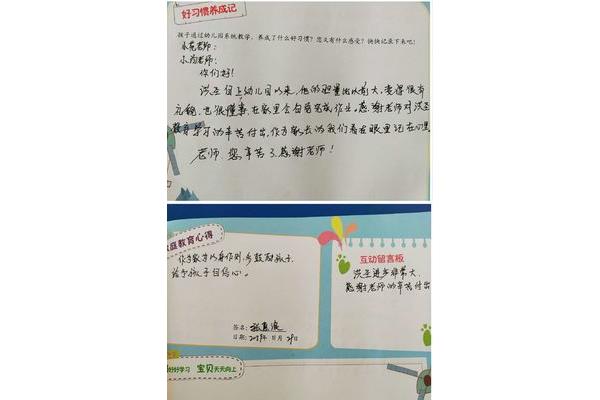 好习惯养成记
孩子通过幼儿园系统教学，养成了什么好习惯？您又有什么感受？快快记录下来吧！
老师：
小 老师：
你们好！
自上幼儿园以来，他的胆量比以前大，变得很有
礼貌，也很懂事，在家里会自觉完成作业。感谢老师对
教育学习的辛苦付出，作为家长的我们看在眼里记在心里
老师，您辛苦了，感谢老师！
庭教育心得
作为家长以身作则，多鼓励孩子，
给予孩子自信心。
签名：
日期： 年 11月 29日
互动留言板
进步非常大，
感谢老师的辛苦付出
好好学习 宝贝天天向上